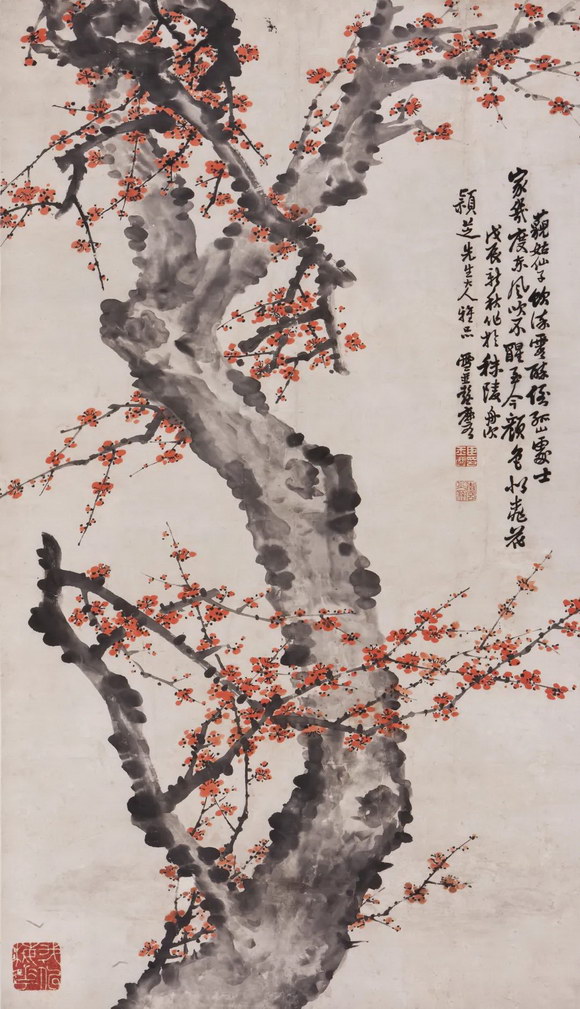 藐姑仙子飲流霞醉倚孤山處士
家幾度東風吹不醒至今顏色似桃花
戊辰新秋作於秣陵舟次
穎芝先生大人雅 雪琴彭玉麐